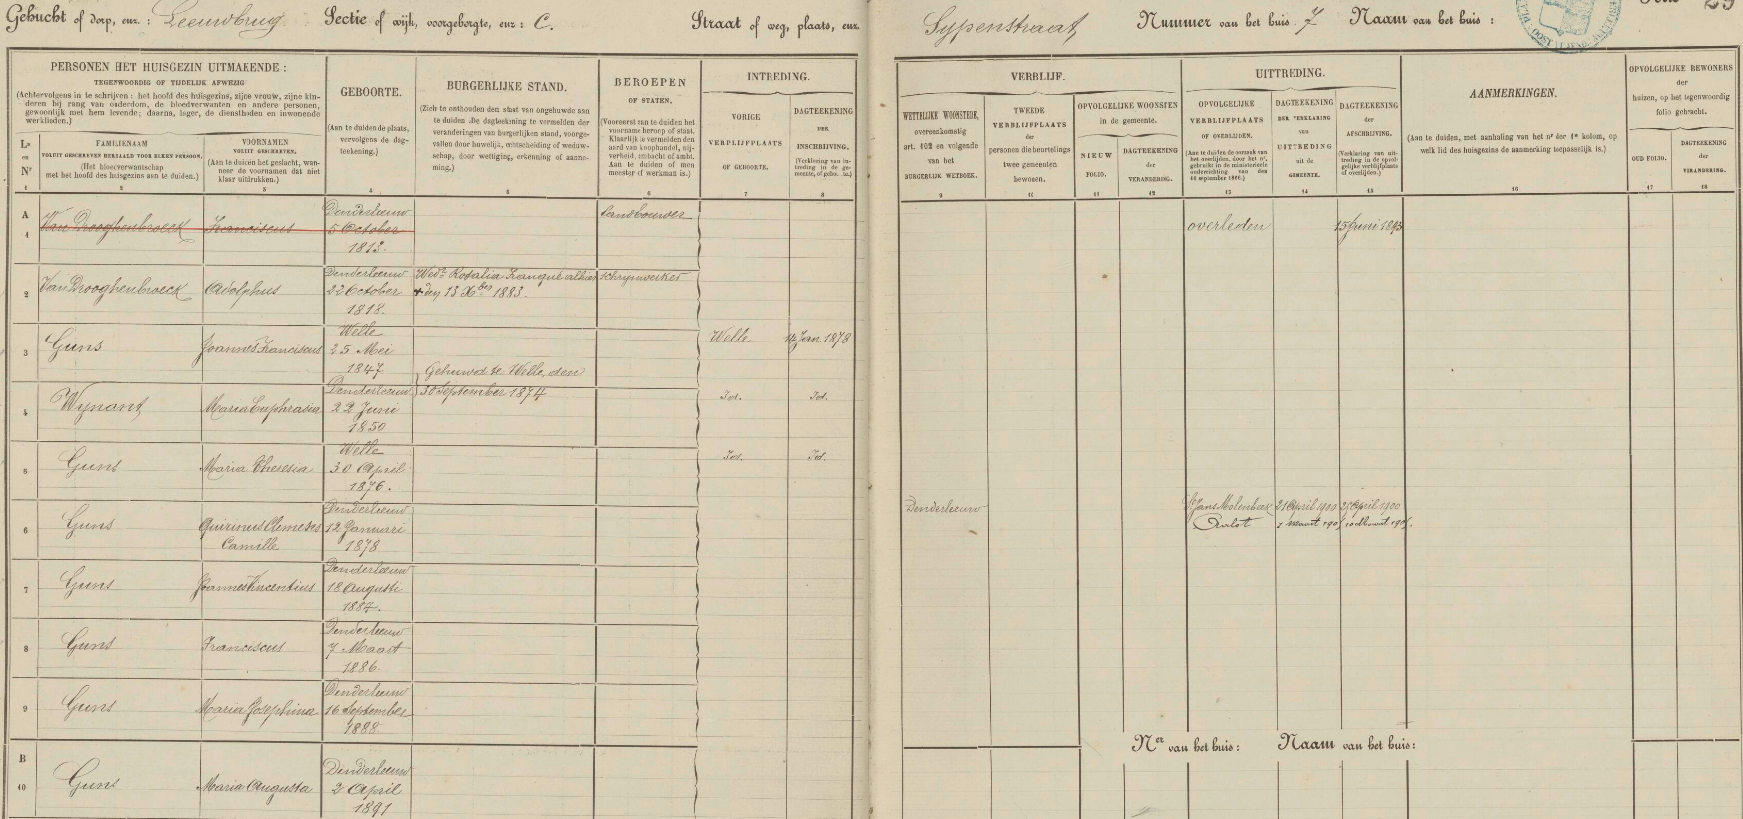 Gehucht of dorp, enz. : Leeuwbrug Sectie of wijk, voorgeborgte, enz : C. Straat of weg, plaats, enz. Sypenstraat Nummer van het huis 7 Naam van het huis :
PERSONEN HET HUISGEZIN UITMAKENDE :
TEGENWOORDIG OF TIJDELIJK AFWEZIG
(Achtervolgens in te schrijven : het hoofd des huisgezins, zijne vrouw, zijne kin-
deren bij rang van ouderdom, de bloedverwanten en andere personen,
gewoonlijk met hem levende; daarna, lager, de dienstboden en inwonende
werklieden.)
Ls
en
Nr
1
FAMILIENAAM
VOLUIT GESCHREVEN HERHAALD VOOR ELKEN PERSOON,
(Het bloedverwantschap
met het hoofd des huisgezins aan te duiden.)
2
VOORNAMEN
VOLUIT GESCHREVEN.
(Aan te duiden het geslacht, wan-
neer de voornamen dat niet
klaar uitdrukken.)
3
GEBOORTE.
(Aan te duiden de plaats,
vervolgens de dag-
teekening.)
4
BURGERLIJKE STAND.
(Zich te onthouden den staat van ongehuwde aan
te duiden. De dagteekening te vermelden der
veranderingen van burgerlijken stand, voorge-
vallen door huwelijk, echtscheiding of weduw-
schap, door wettiging, erkenning of aanne-
ming.)
5
BEROEPEN
OF STATEN.
(Voorerst aan te duiden het
voorname beroep of staat.
Klaarlijk te vermelden den
aard van koophandel, nij-
verheid, ambacht of ambt.
Aan te duiden of men
meester of werkman is.)
6
INTREDING.
VORIGE
VERBLIJFPLAATS
OF GEBOORTE.
7
DAGTEEKENING
DER
INSCHRIJVING.
8
VERBLIJF.
WETTELIJKE WOONSTEDE,
overeenkomstig
art. 102 en volgende
van het
BURGERLIJK WETBOEK.
9
TWEEDE
VERBLIJFPLAATS
der
personen die beurtelings
twee gemeenten
bewonen.
10
OPVOLGELIJKE WOONSTEN
in de gemeente.
NIEUW
FOLIO.
11
DAGTEEKENING
der
VERANDERING.
12
UITTREDING.
OPVOLGELIJKE
VERBLIJFPLAATS
OF OVERLIJDEN.
13
DAGTEEKENING
DER VERKLARING
van
UITTREDING
uit de
GEMEENTE.
14
DAGTEEKENING
der
AFSCHRIJVING.
15
AANMERKINGEN.
(Aan te duiden, met aanhaling van het nr der 1e kolom, op
welk lid des huisgezins de aanmerking toepasselijk is.)
16
OPVOLGELIJKE BEWONERS
der
huizen, op het tegenwoordig
folio gebracht.
OUD FOLIO.
17
DAGTEEKENING
der
VERANDERING.
18
A
1 Van Drooghenbroeck Franciscus Denderleeuw landbouwer
5 October overleden 15 Juni 1893
1813.
2 Van Drooghenbroeck Adolphus Denderleeuw Wedr Rosalia schrijnwerker
22 October + den 13 Xber 1883.
1818.
3 Guns Joannes Franciscus Welle Welle 14 Jan 1878
25 Mei
1847 Gehuwd te Welle, den
4 Wijnant Maria Euphrasia Denderleeuw 30 September 1874 Id. Id.
22 Juni
1850
5 Guns Maria Theresia Welle Id. Id.
30 April
1876.
6 Guns Quirinus Clemens Denderleeuw Denderleeuw St Jans Molenbeek 21 April 1900
Camille 12 Januari Aalst 1 Maart
1878
7 Guns Joannes Vincentius Denderleeuw
18 Augusti
1884.
8 Guns Franciscus Denderleeuw
7 Maart
1886.
9 Guns Maria Josephina Denderleeuw
16 September
1888.
Ner van het huis : Naam van het huis :
B
10 Guns Maria Augusta Denderleeuw
2 April
1891